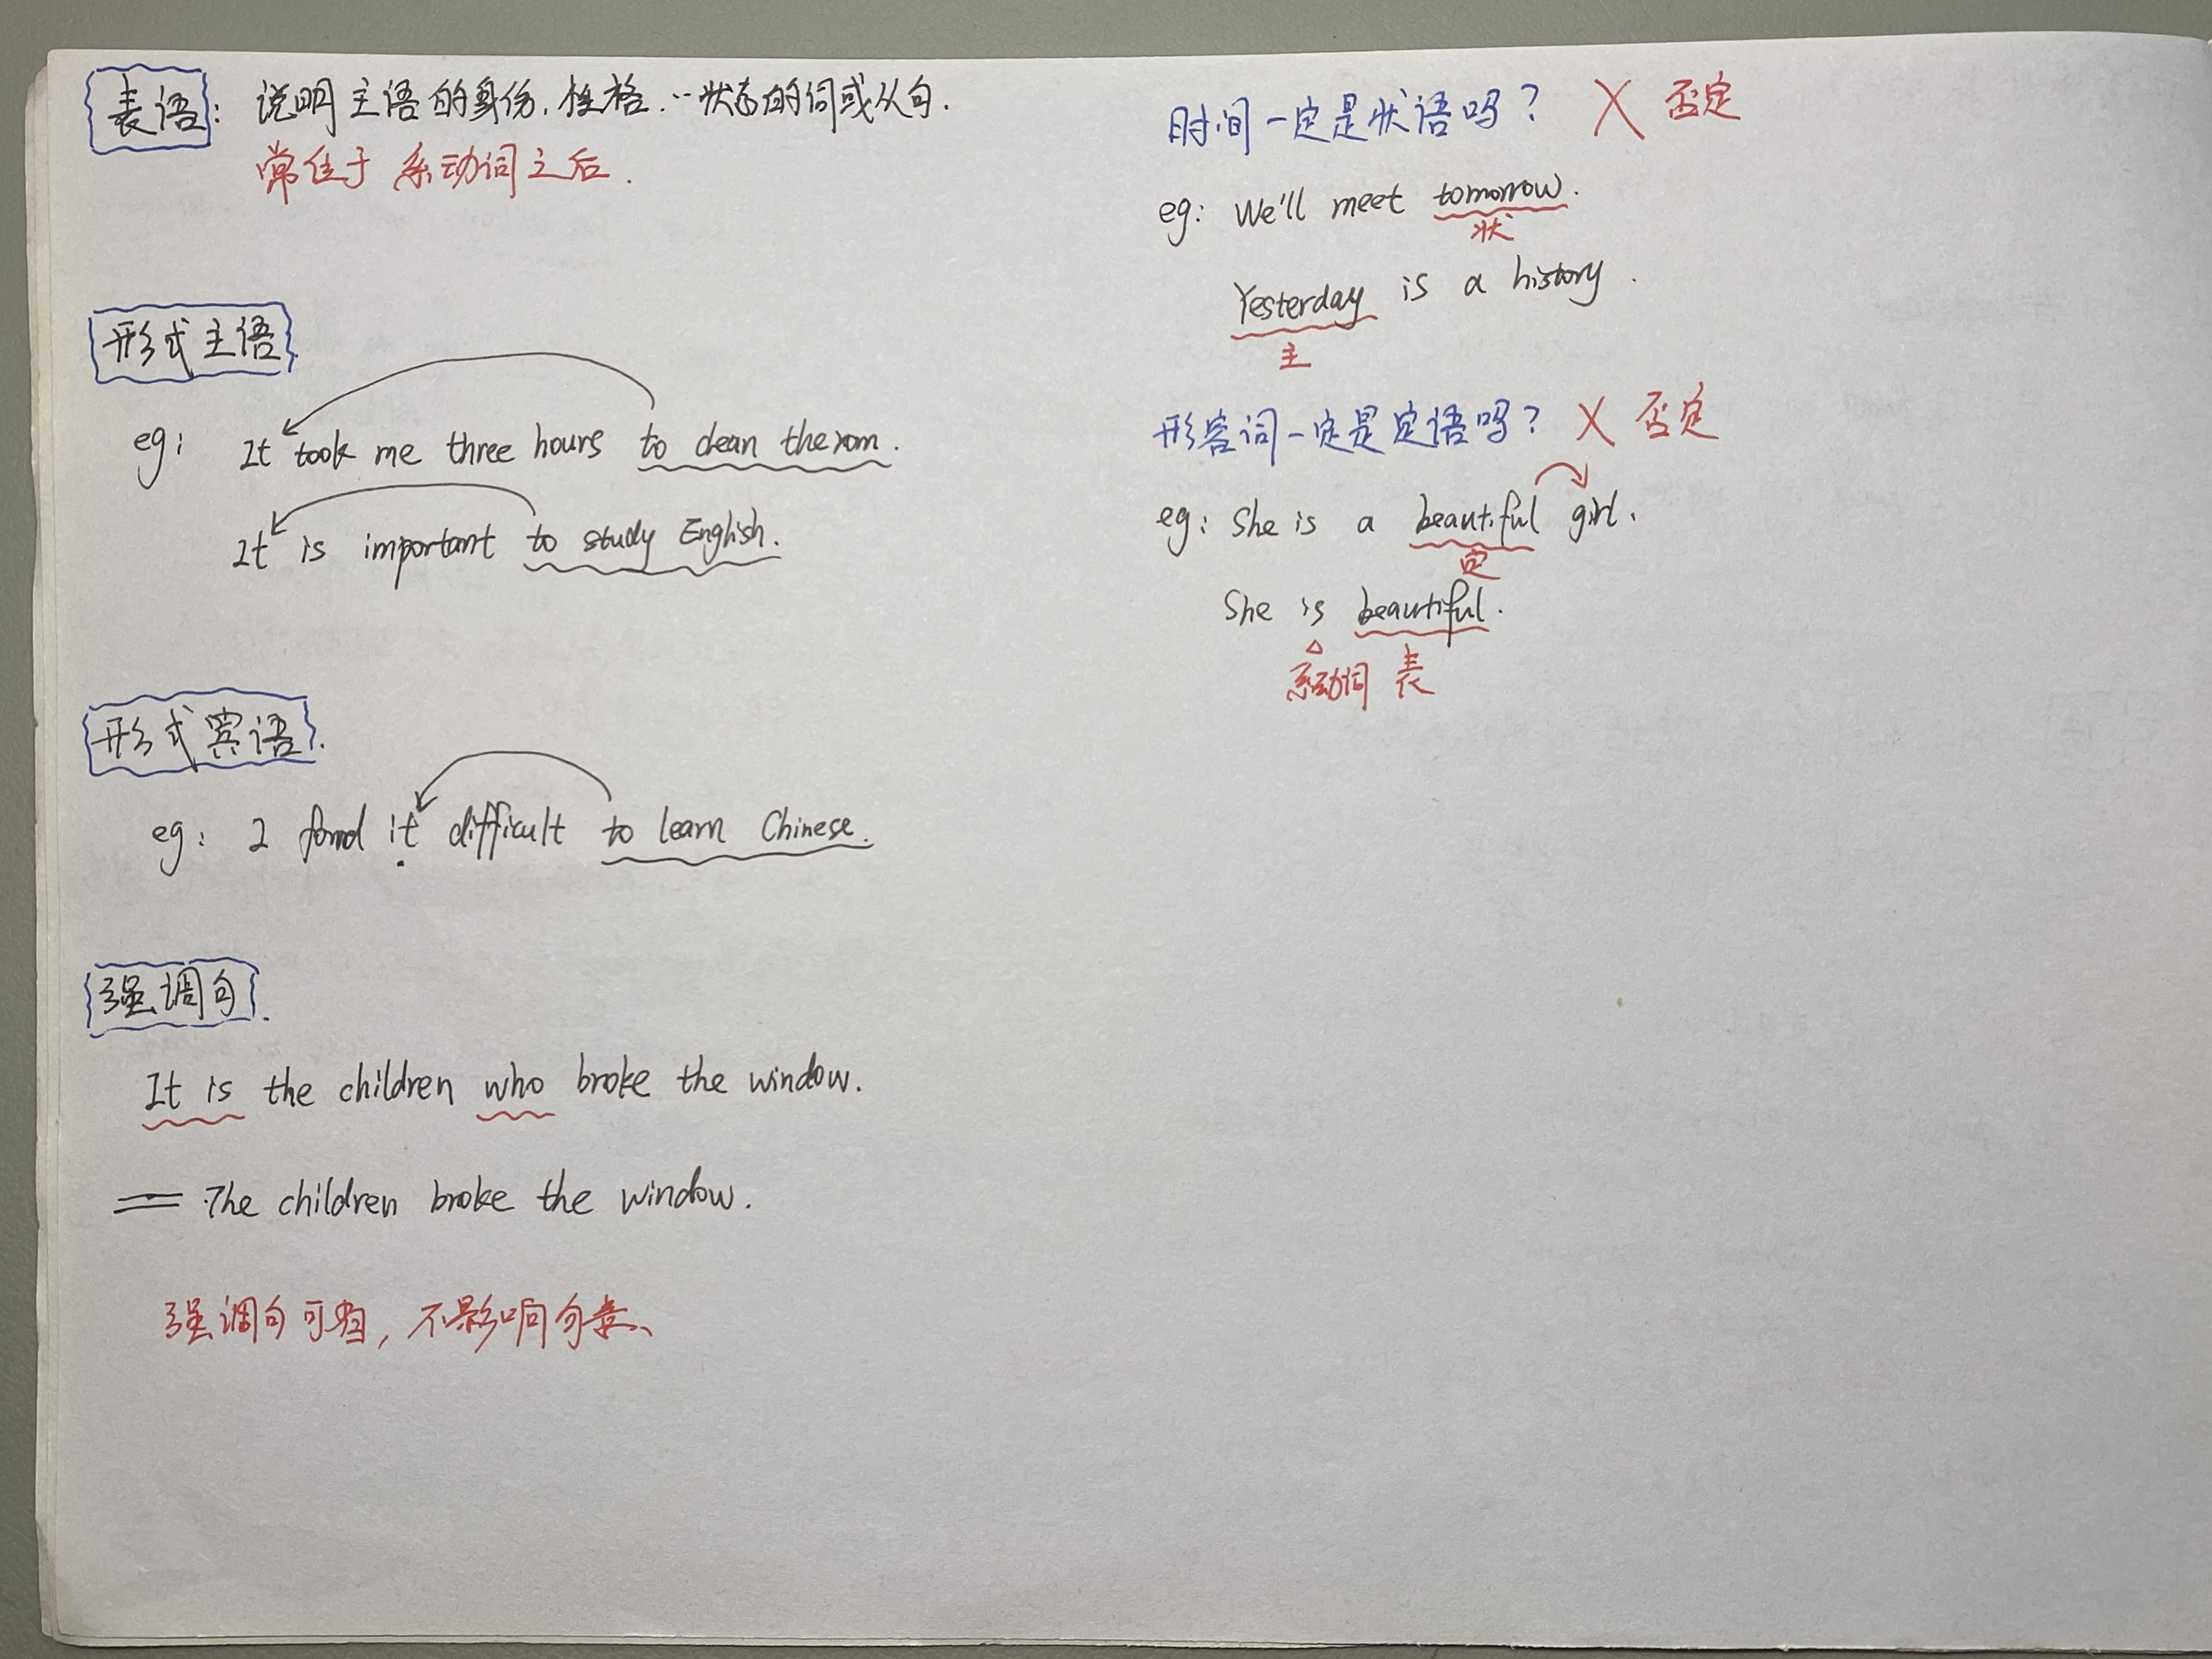 表语: 说明主语的身份.性格.…状态的词或从句.
常位于 系动词之后.
形式主语.
eg: It took me three hours to clean the room.
It is important to study English.
形式宾语.
eg: I found it difficult to learn Chinese.
强调句.
It is the children who broke the window.
= The children broke the window.
强调句可, 不影响句意.
时间一定是状语吗? X 否定
eg: We'll meet tomorrow.
状
Yesterday is a history.
主
形容词一定是定语吗? X 否定
eg: She is a beautiful girl.
定
She is beautiful.
系动词 表